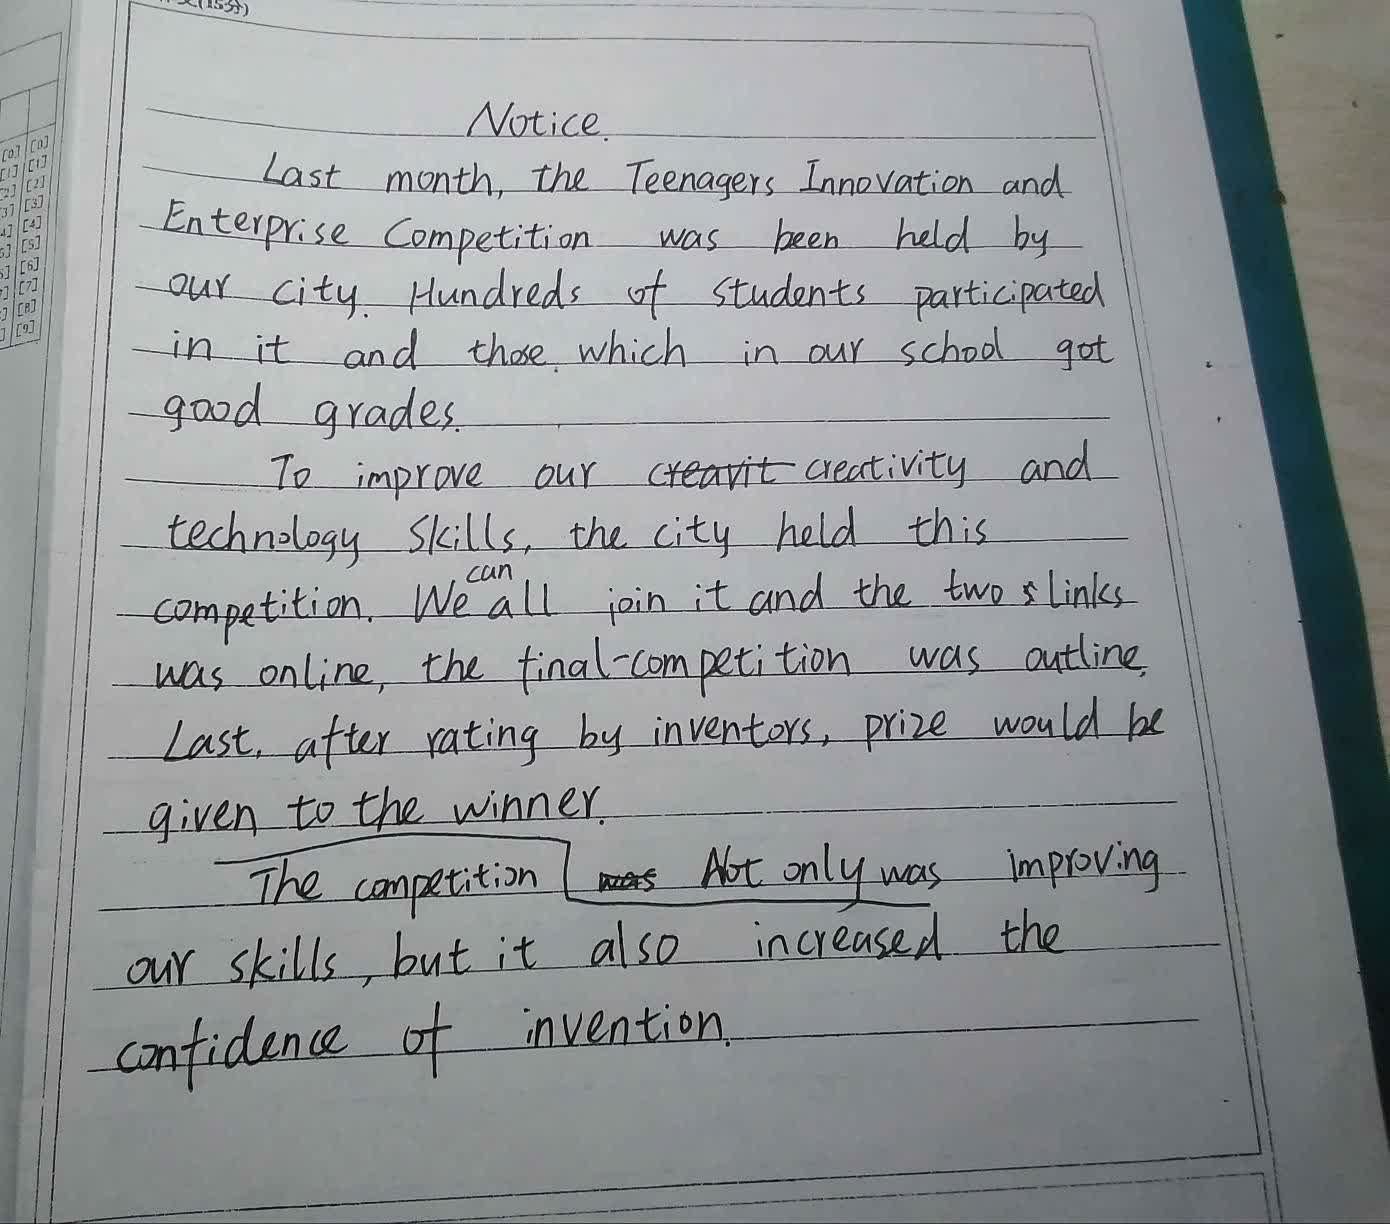 (15分)
Notice.
Last month, the Teenagers Innovation and
Enterprise Competition was been held by
our city. Hundreds of students participated
in it and those which in our school got
good grades.
To improve our creavit creativity and
technology skills, the city held this
can
competition. We all join it and the two s links
was online, the final-competition was outline.
Last, after rating by inventors, prize would be
given to the winner.
The competition was Not only was improving
our skills, but it also increased the
confidence of invention.
[0] [0]
[1] [1]
[2] [2]
[3] [3]
[4] [4]
[5] [5]
[6] [6]
[7] [7]
[8] [8]
[9]